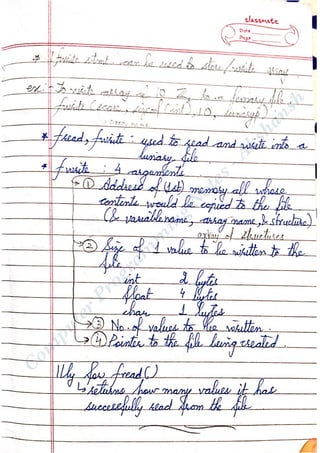 classmate
Date
Page
* 1 fwrite stmt. can be used to store/write array.
ex:- To write array of 10 to a binary file :
fwrite (&arr, sizeof(int), 10,
* fread, fwrite : used to read and write into a
binary file
* fwrite : 4 arguments
→ ① Address of (1st) memory all whose
contents would be copied to the file
(& variable name, array name, & structure)
array of structures
→ ② Size of 1 value to be written to the
file
int 2 bytes
float 4 bytes
char 1 bytes
→ ③ No. of values to be written.
→ ④ Pointer to the file being created.
Illy for fread()
↳ returns how many values it has
successfully read from the file.
Computer Programming Notes